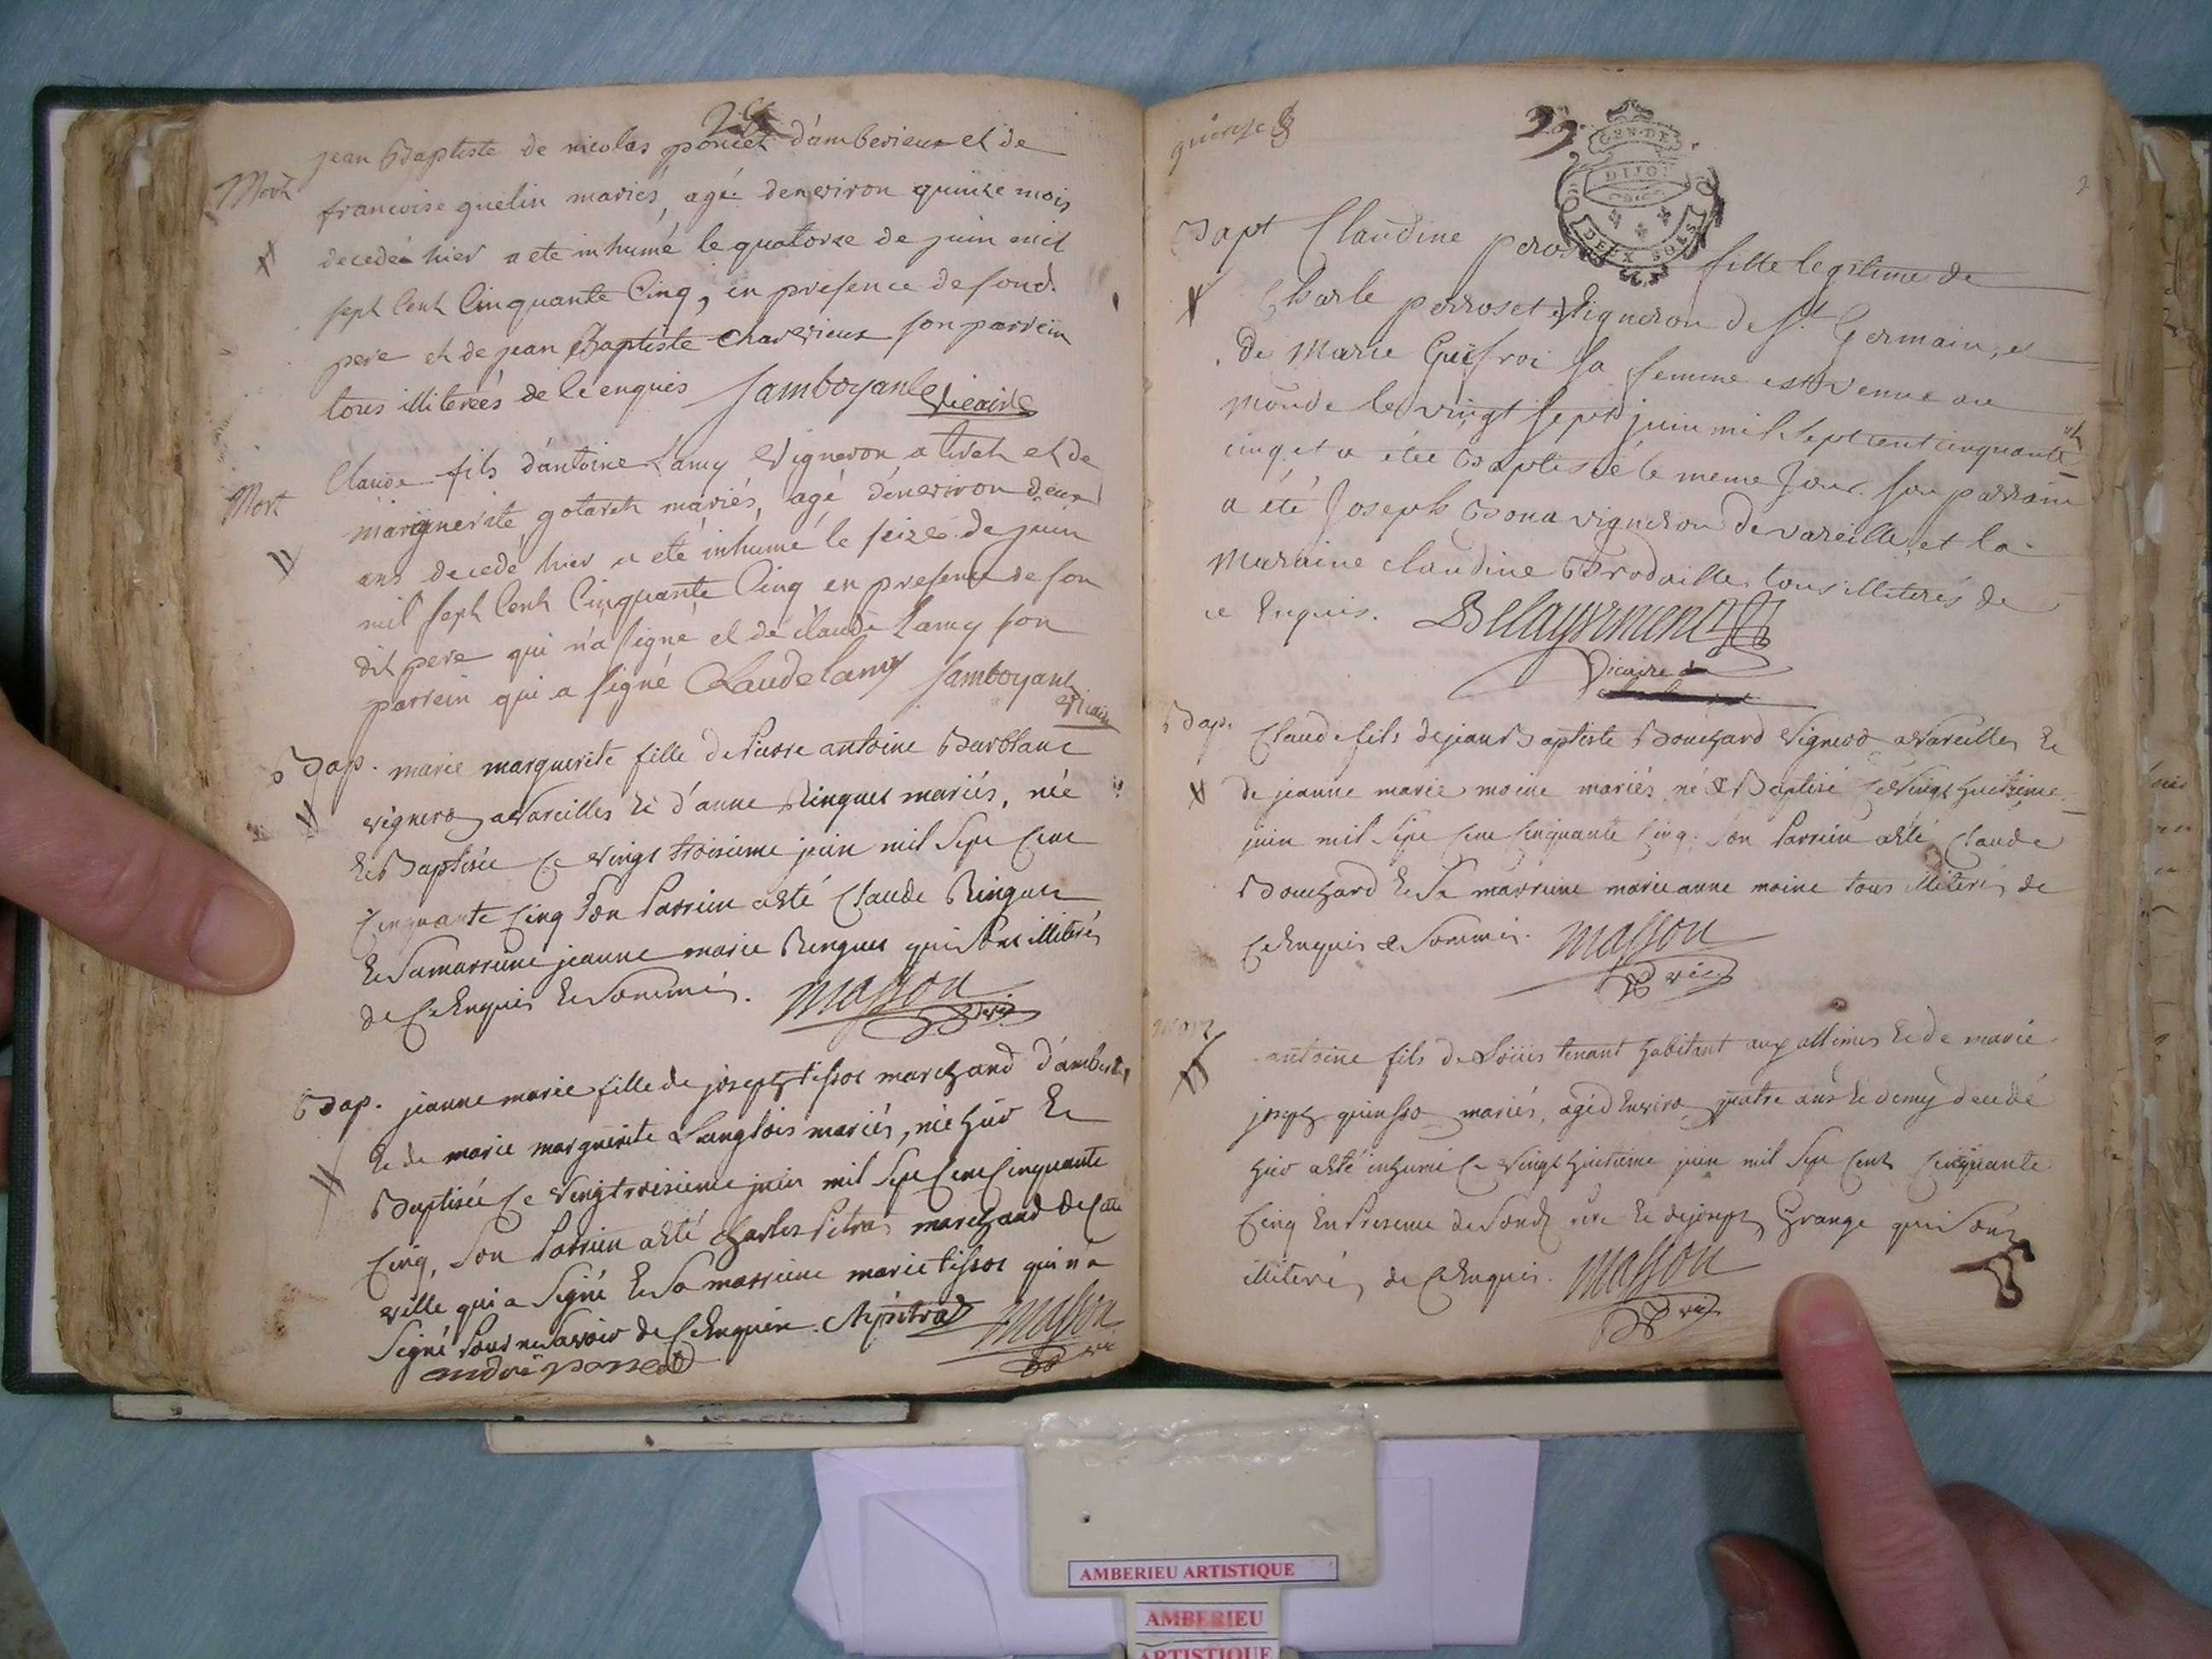 Mort
jean Baptiste de nicolas poncet d'amberieux et de
francoise guelin mariés, agé d'environ quinze mois
decedé hier a eté inhumé le quatorze de juin mil
sept Cent Cinquante Cinq, en presence de sond.
pere et de jean Baptiste Charvrieux son parrein
tous illiterés de ce enquis Jamboyant Vicaire
Mort
Claude fils d'antoine Lamy Vigneron a tiret et de
marguerite gotaret mariés, agé d'environ deux
ans decedé hier a eté inhumé le seize de juin
mil sept Cent Cinquante Cinq en presence de son
dit pere qui n'a signé et de claude Lamy son
parrein qui a signé Claude lamy Jamboyant
Vicaire
Bap. marie marguerite fille de Pierre antoine Barblanc
vignero a Vareilles Et d'anne Ringuet mariés, née
Et Baptisée Ce vingt troisieme juin mil Sept Cent
Cinquante Cinq Son Parrein a été Claude Ringuet
Et Sa marreine jeanne marie Ringuet qui Sont illiterés
de Ce Enquis Et Sommés. Masson
vic.
Bap. jeanne marie fille de joseph tissot marchand d'amberieu
Et de marie marguerite Langlois mariés, née hier Et
Baptisée Ce vingtroisieme juin mil Sept Cent Cinquante
Cinq, Son Parrein a été Charles Pitrat marchand de Cette
ville qui a Signé Et Sa marreine marie tissot qui n'a
Signé Pour ne Savoir de Ce Enquise. C pitrat Masson
andré poncet vic
quinze
29
GEN. DE
DIJON
DEUX SOLS
Bapt Claudine perroset fille legitime de
Charle perroset Vigneron de St Germain, et
de Marie Guifroi sa femme est venue au
monde le vingt sept juin mil sept cent cinquante
cinq et a étée Baptisée le meme jour. son parrain
a été Joseph Bona vigneron de vareille, et la
Maraine claudine Brodaille tous illiterés de
ce Enquis. Delaysement
Vicaire
Bap. Claude fils de jean Baptiste Bouchard Vignero a Vareilles Et
de jeanne marie moine mariés né & Baptisé Ce Vingt huitieme
juin mil Sept Cent Cinquante Cinq. Son Parrein a été Claude
Bouchard Et Sa marreine marie anne moine tous illiterés de
Ce Enquis & Sommés. Masson
vic.
Mort
antoine fils de Loüis tenant habitant aux allimes Et de marie
joseph quinson mariés, agé d'Enviro quatre ans Et demy decedé
hier a été inhumé Ce Vingt huitieme juin mil Sept Cent Cinquante
Cinq En Presence de Sond Pere Et de joseph Grange qui Sont
illiterés de Ce Enquis. Masson
vic
AMBERIEU ARTISTIQUE
AMBERIEU
ARTISTIQUE